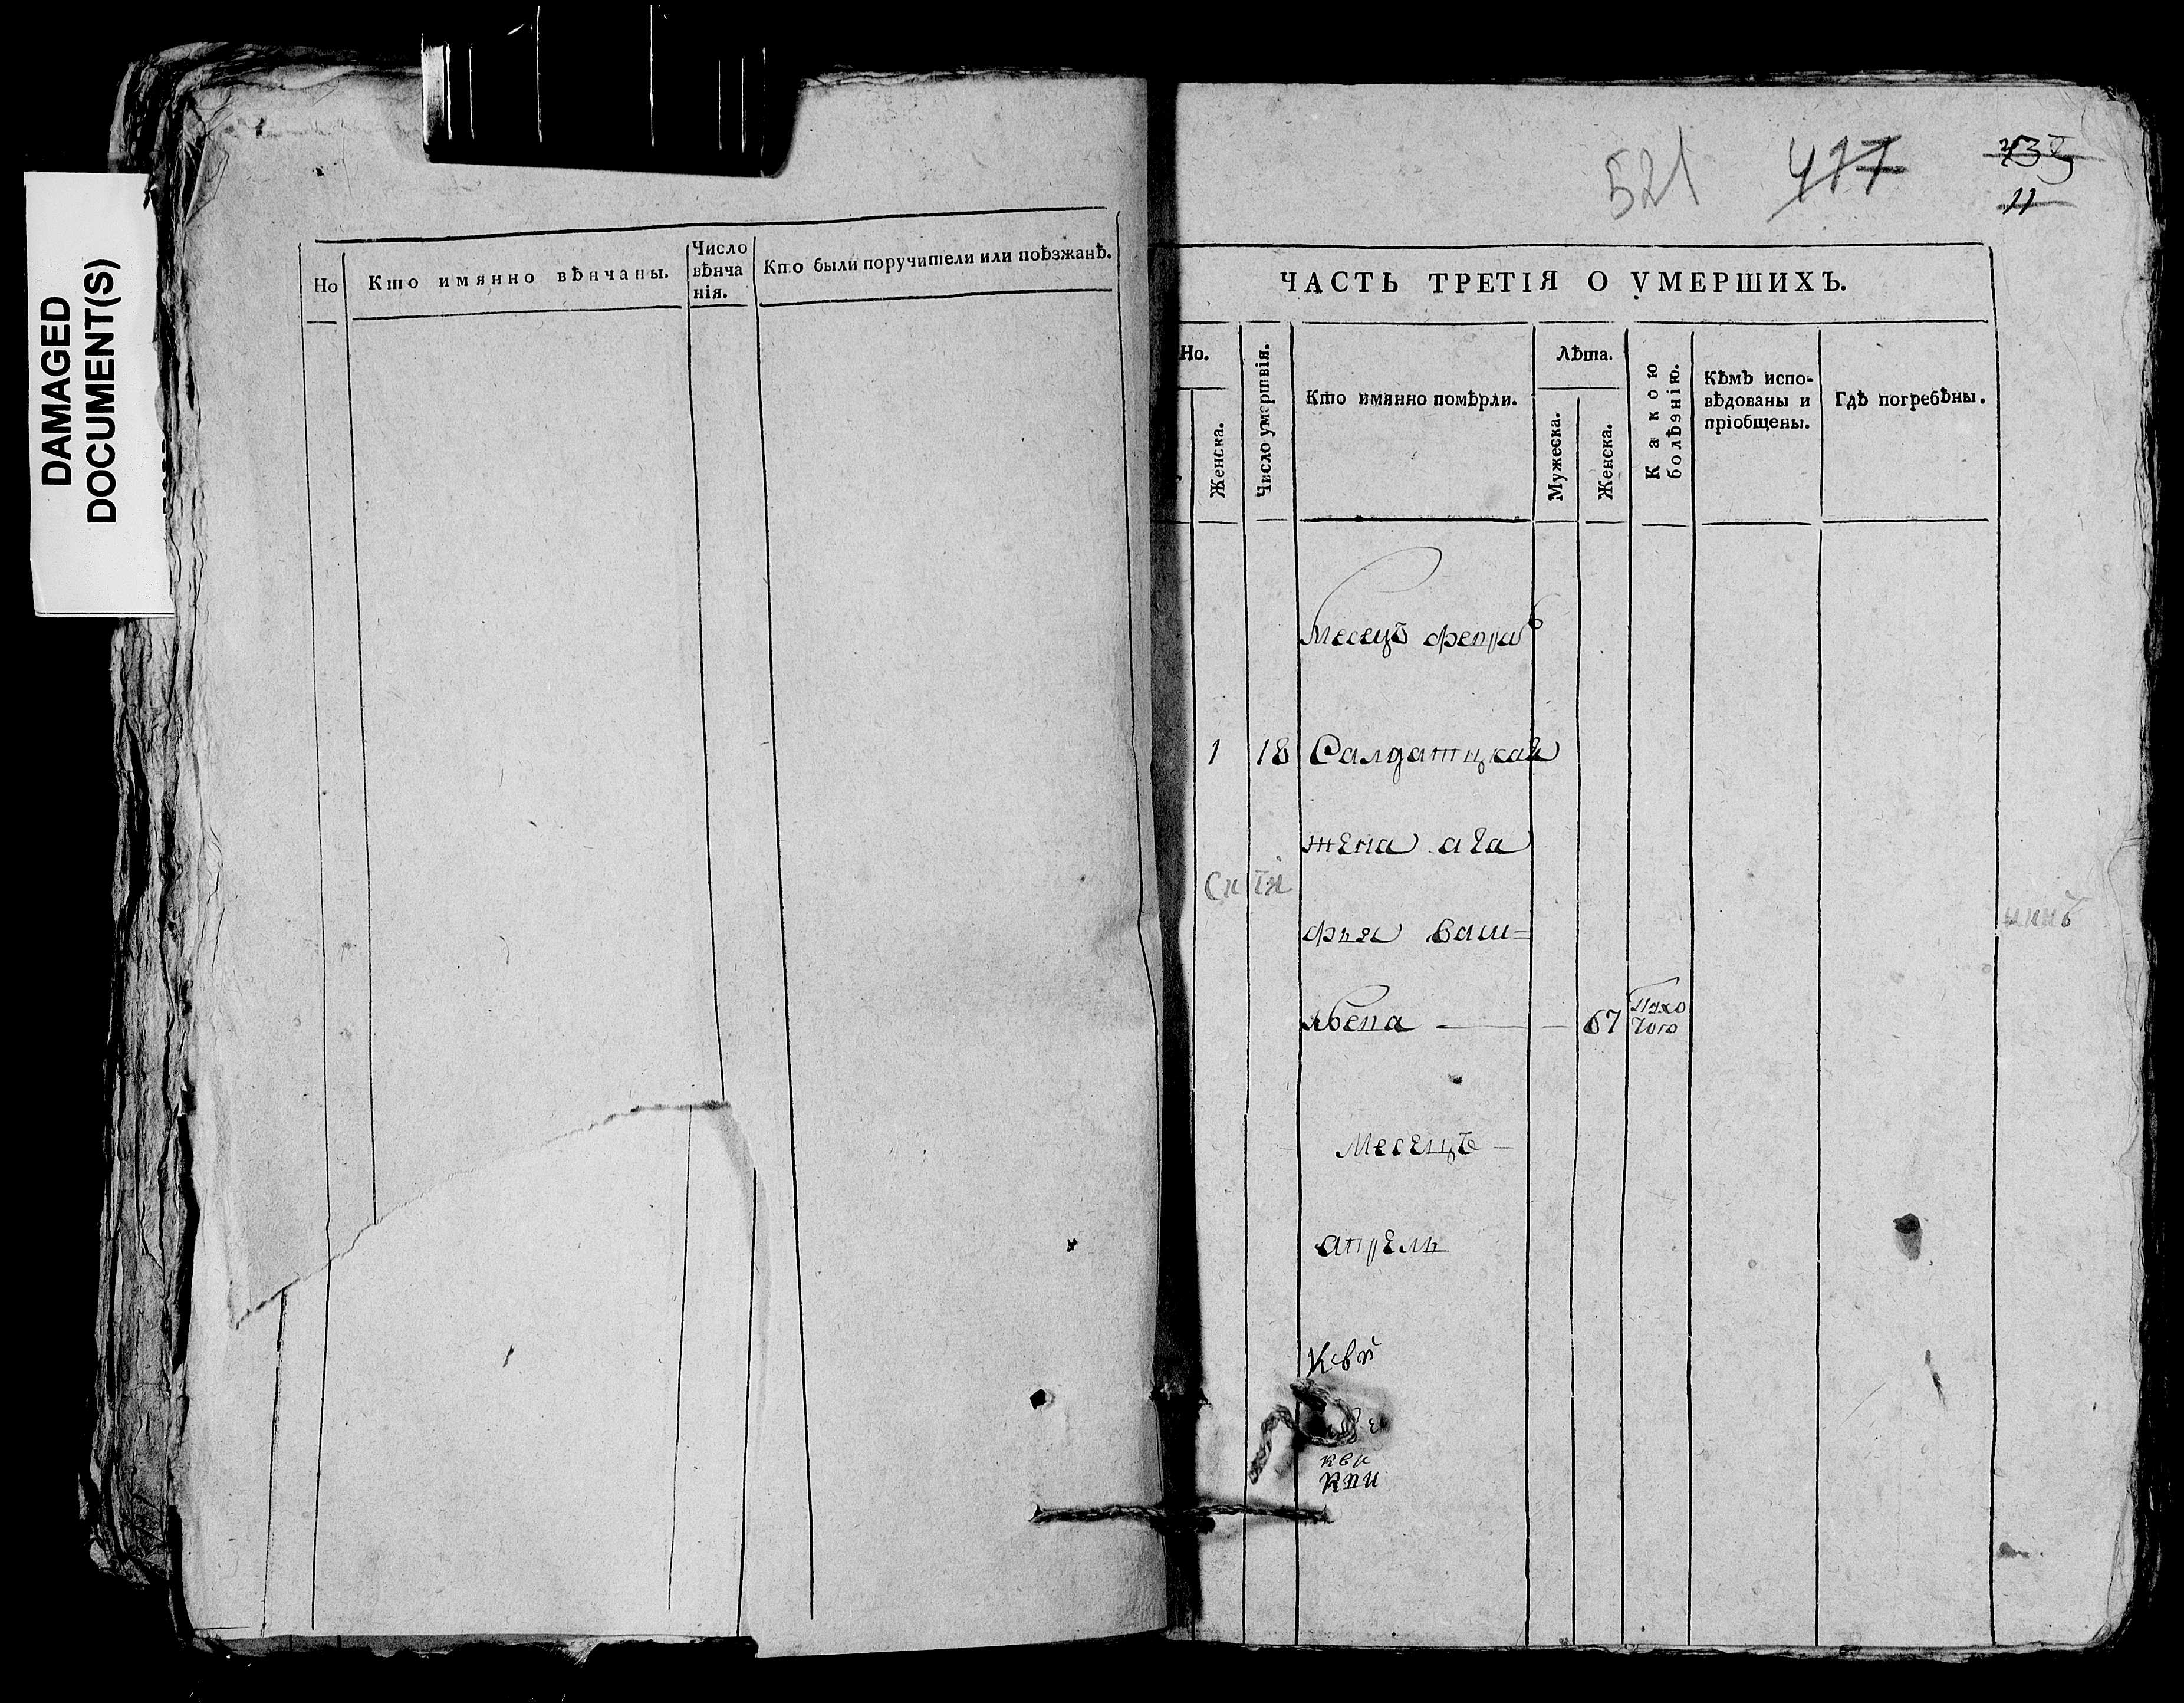 DAMAGED
DOCUMENT(S)
Но
Кто имянно вѣнчаны.
Число
вѣнча
нія.
Кто были поручители или поѣзжанѣ.
521 417
11
ЧАСТЬ ТРЕТІЯ О УМЕРШИХЪ.
Но.
Женска.
Число умертвія.
Кто имянно помѣрли.
Лѣта.
Мужеска.
Женска.
Какою
болѣзнію.
Кѣмъ испо-
вѣдованы и
пріобщены.
Гдѣ погребѣны.
Месецъ
1 18 Салдатцкая
жена ага
фья васи=
льева 67
Месецъ
апрель